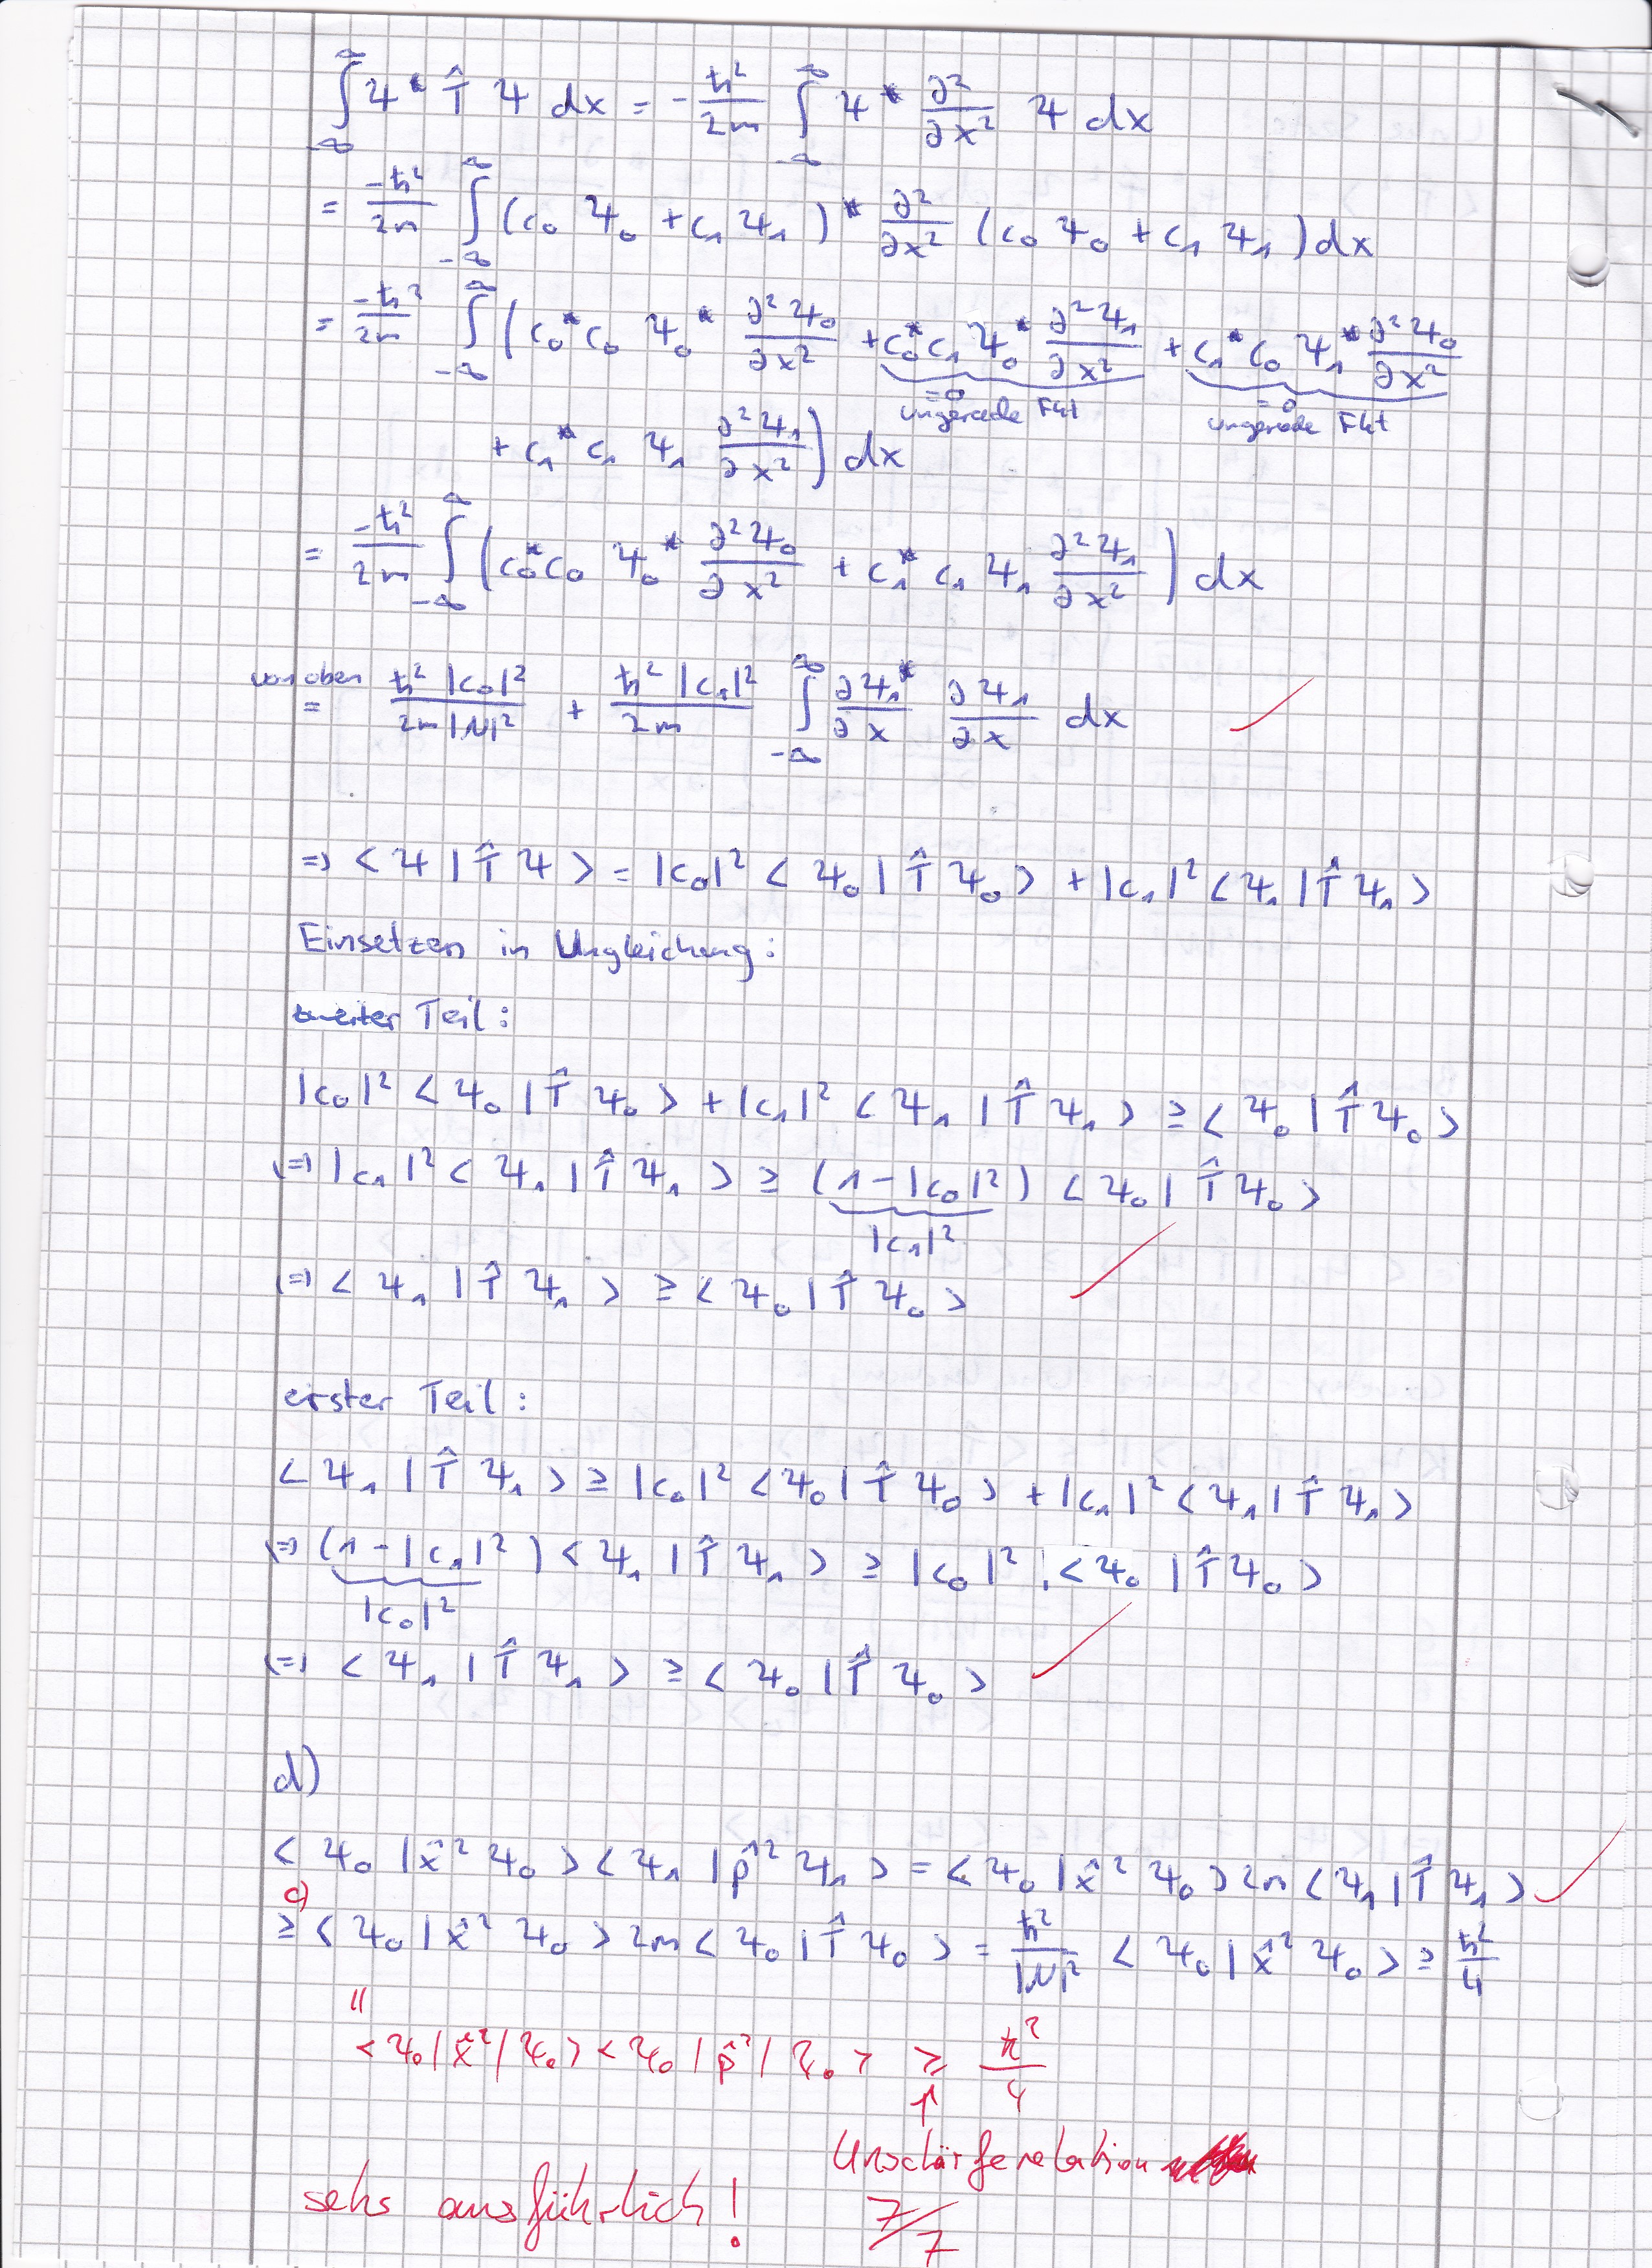 ∫_{-∞}^{∞} Ψ* T̂ Ψ dx = -ħ²/2m ∫_{-∞}^{∞} Ψ* ∂²/∂x² Ψ dx
= -ħ²/2m ∫_{-∞}^{∞} (c₀ Ψ₀ + c₁ Ψ₁)* ∂²/∂x² (c₀ Ψ₀ + c₁ Ψ₁) dx
= -ħ²/2m ∫_{-∞}^{∞} (c₀* c₀ Ψ₀* ∂²Ψ₀/∂x² + c₀* c₁ Ψ₀* ∂²Ψ₁/∂x² + c₁* c₀ Ψ₁* ∂²Ψ₀/∂x²
= 0 = 0
ungerade Fkt ungerade Fkt
+ c₁* c₁ Ψ₁ ∂²Ψ₁/∂x²) dx
= -ħ²/2m ∫_{-∞}^{∞} (c₀* c₀ Ψ₀* ∂²Ψ₀/∂x² + c₁* c₁ Ψ₁ ∂²Ψ₁/∂x²) dx
von oben = ħ² |c₀|²/2m|N|² + ħ² |c₁|²/2m ∫_{-∞}^{∞} ∂Ψ₁*/∂x ∂Ψ₁/∂x dx
⇒ < Ψ | T̂ Ψ > = |c₀|² < Ψ₀ | T̂ Ψ₀ > + |c₁|² < Ψ₁ | T̂ Ψ₁ >
Einsetzen in Ungleichung:
zweiter Teil:
|c₀|² < Ψ₀ | T̂ Ψ₀ > + |c₁|² < Ψ₁ | T̂ Ψ₁ > ≥ < Ψ₀ | T̂ Ψ₀ >
(=) |c₁|² < Ψ₁ | T̂ Ψ₁ > ≥ (1 - |c₀|²) < Ψ₀ | T̂ Ψ₀ >
|c₁|²
(=) < Ψ₁ | T̂ Ψ₁ > ≥ < Ψ₀ | T̂ Ψ₀ >
erster Teil:
< Ψ₁ | T̂ Ψ₁ > ≥ |c₀|² < Ψ₀ | T̂ Ψ₀ > + |c₁|² < Ψ₁ | T̂ Ψ₁ >
(=) (1 - |c₁|²) < Ψ₁ | T̂ Ψ₁ > ≥ |c₀|² · < Ψ₀ | T̂ Ψ₀ >
|c₀|²
(=) < Ψ₁ | T̂ Ψ₁ > ≥ < Ψ₀ | T̂ Ψ₀ >
d)
< Ψ₀ | x̂² Ψ₀ > < Ψ₁ | p̂² Ψ₁ > = < Ψ₀ | x̂² Ψ₀ > 2m < Ψ₁ | T̂ Ψ₁ >
c)
≥ < Ψ₀ | x̂² Ψ₀ > 2m < Ψ₀ | T̂ Ψ₀ > = ħ²/|N|² < Ψ₀ | x̂² Ψ₀ > ≥ ħ²/4
=
< Ψ₀ | x̂² | Ψ₀ > < Ψ₀ | p̂² | Ψ₀ > ≥ ħ²/4
↑
Unschärferelation
sehr ausführlich! 7/7